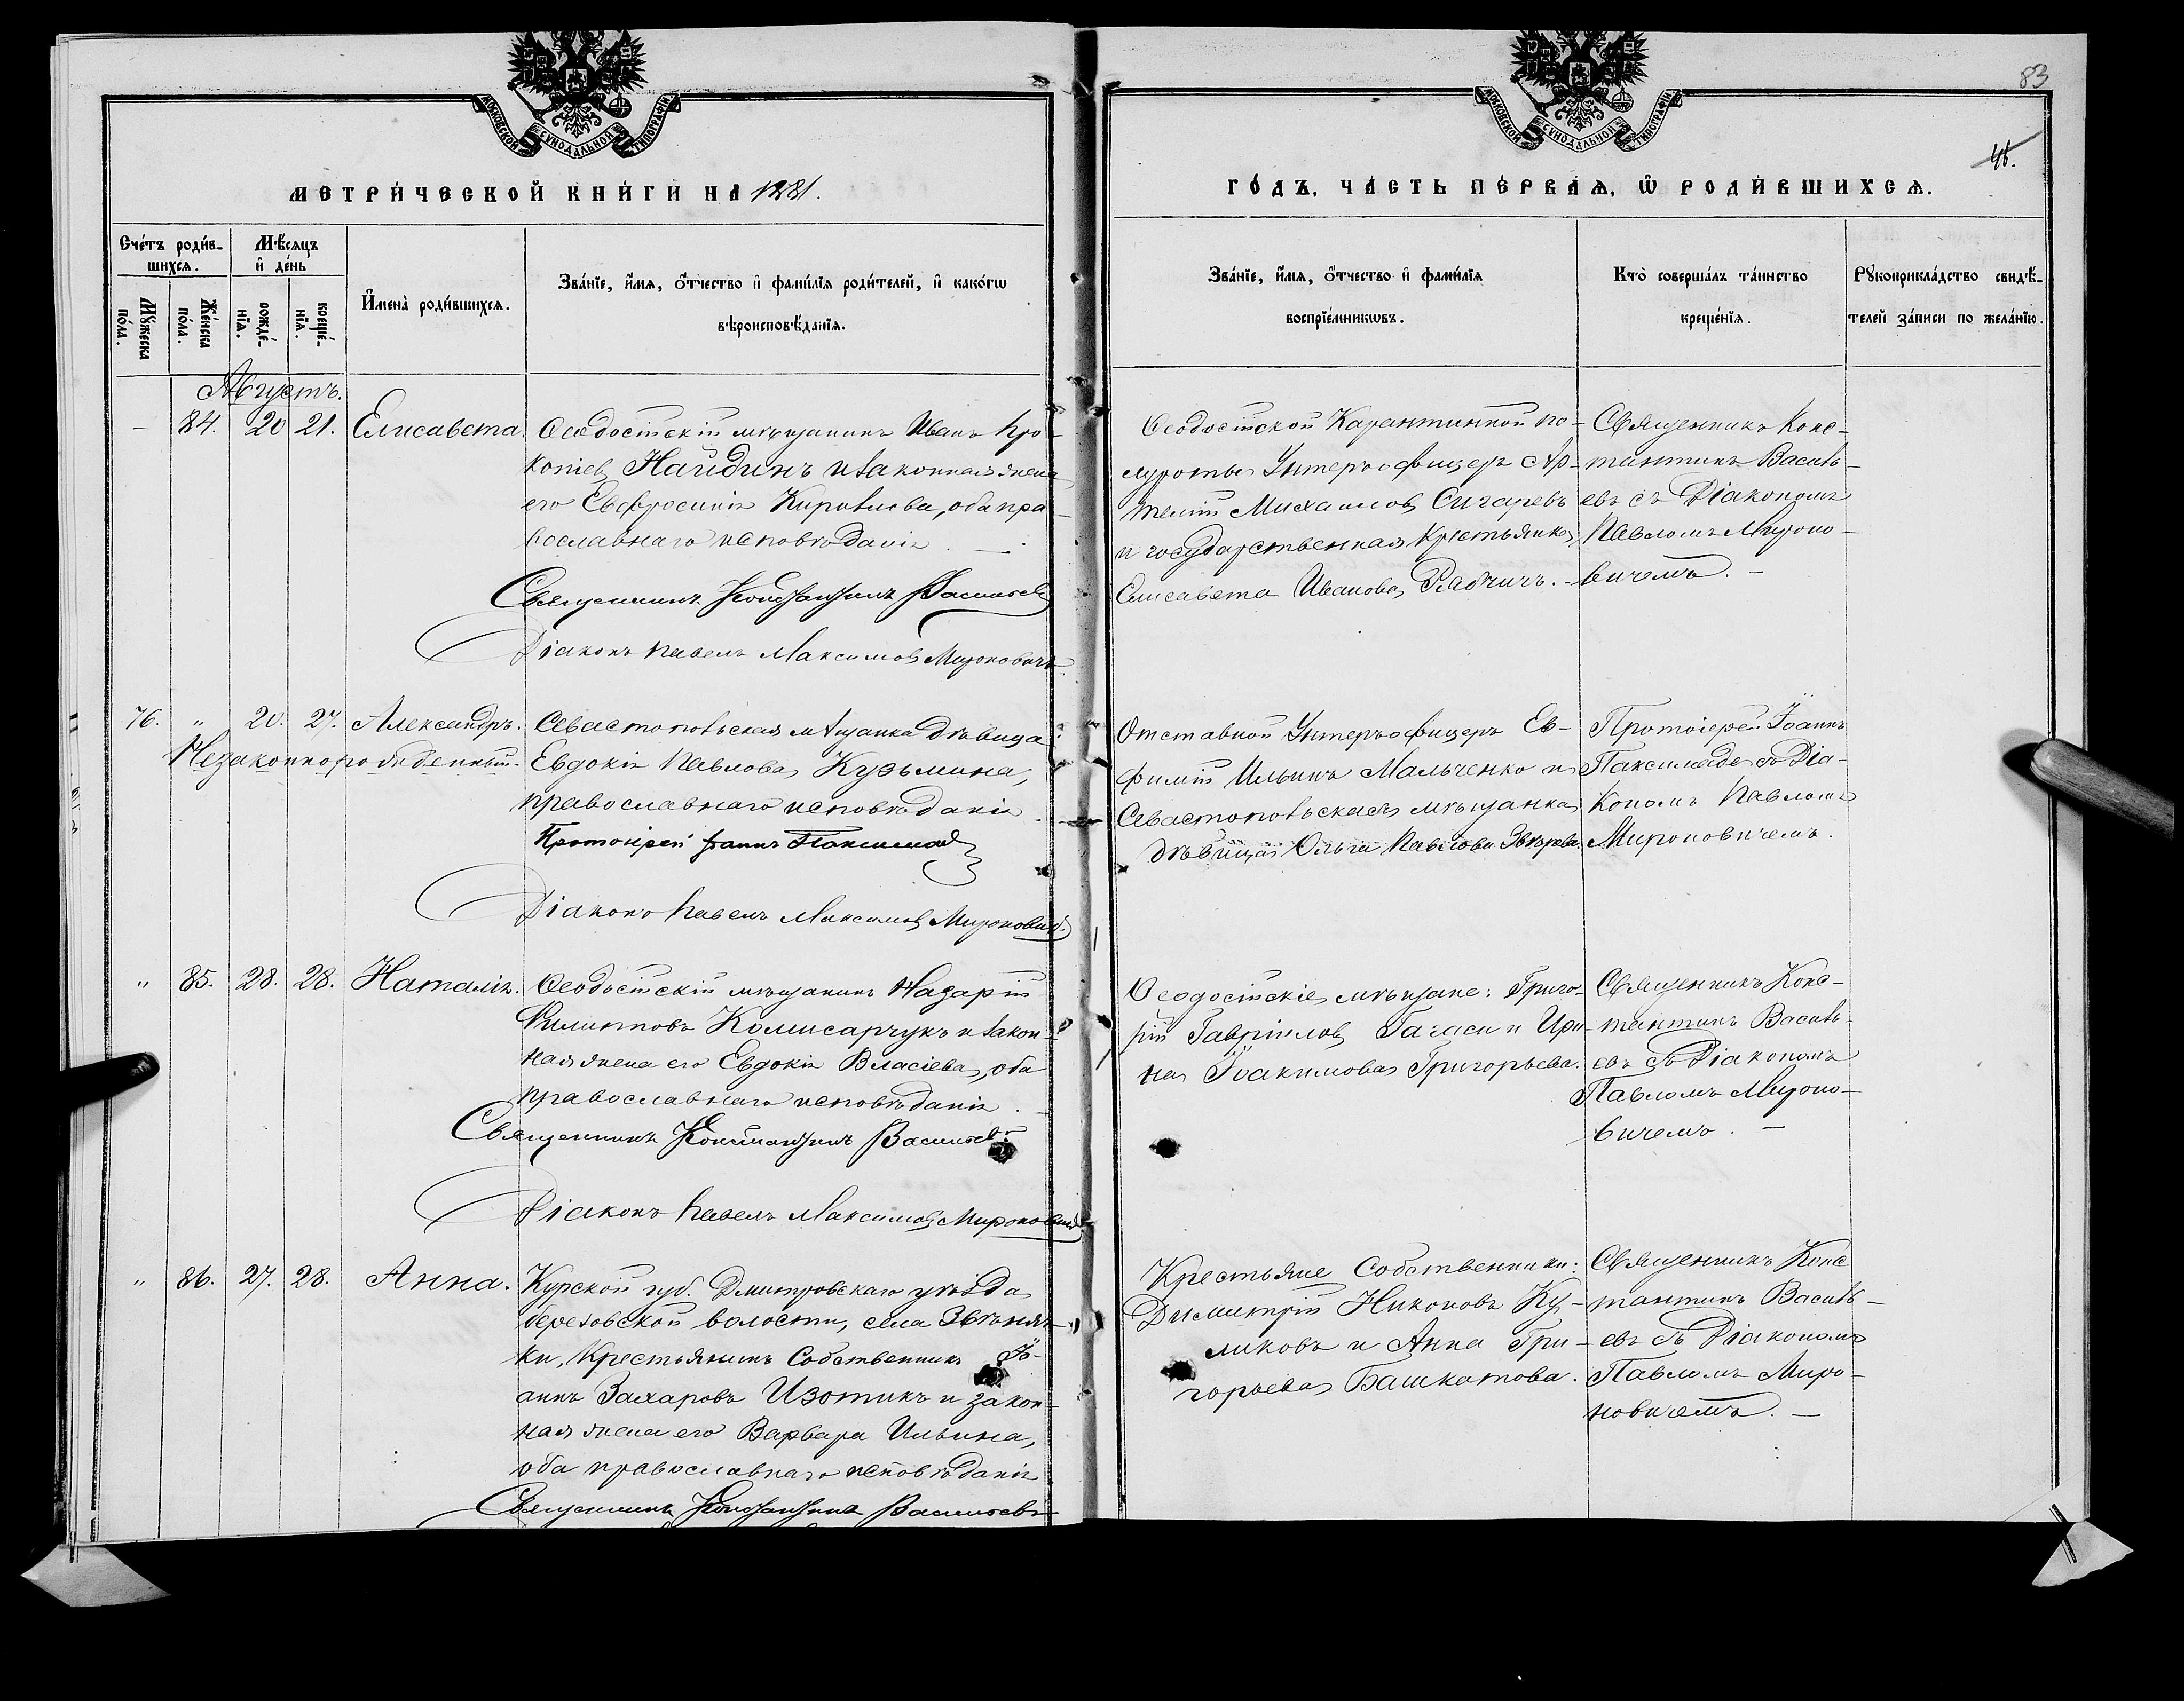 83
46.
МОСКОВСКОЙ СѴНОДАЛЬНОЙ ТИПОГРАФІИ
МОСКОВСКОЙ СѴНОДАЛЬНОЙ ТИПОГРАФІИ
МЕТРИ́ЧЕСКОЙ КНИ́ГИ НА 1881.
ГО́ДЪ, ЧА́СТЬ ПЕ́РВАѦ, Ѿ РОДИ́ВШИХСѦ.
Счéтъ роди́в-
шихсѧ.
Мѣ́сяцъ
и҆ де́нь
Мꙋ́жеска
по́ла.
Же́нска
по́ла.
рожде́-
нїѧ.
креще́-
нїѧ.
И҆мена̀ роди́вшихсѧ.
Зва́нїе, и҆́мѧ, ѻ҆́тчество и҆ фами́лїѧ роди́телей, и҆ како́гѡ
вѣроисповѣ́данїѧ.
Зва́нїе, и҆́мѧ, ѻ҆́тчество и҆ фами́лїѧ
воспрїе́мникѡвъ.
Кто̀ соверша́лъ та́инство
креще́нїѧ.
Рꙋкоприкла́дство свидѣ́-
телей за́писи по жела́нїю.
Августъ.
— 84. 20 21. Елисавета.
Ѳеодосійскій мѣщанинъ Иванъ Про-
копіевъ Найдинъ и законная жена
его Евфросинія Кирилова, оба пра-
вославнаго исповѣданія. —
Священникъ Константинъ Васильевъ
Діаконъ Павелъ Максимовъ Мироновичъ
Ѳеодосійской Карантинной по-
луроты Унтеръ-офицеръ Ар-
темій Михаиловъ Сигаревъ
и государственная крестьянка
Елисавета Иванова Рабчичъ. —
Священникъ Конс-
тантинъ Василь-
евъ съ Діакономъ
Павломъ Мироно-
вичемъ. —
76. „ 20. 27. Александръ.
Незаконнорожденный.
Севастопольская мѣщанка дѣвица
Евдокія Павлова Кузьмина,
православнаго исповѣданія
Протоіерей Іоаннъ
Діаконъ Павелъ Максимовъ Мироновичъ.
Отставной Унтеръ-офицеръ Ев-
фимій Ильинъ Мальченко и
Севастопольская мѣщанка
дѣвица Ольга Павлова Звѣрева.
Протоіерей Іоаннъ
Паксимаде съ Діа-
кономъ Павломъ
Мироновичемъ.
„ 85. 28. 28. Наталія.
Ѳеодосійскій мѣщанинъ Назарій
Филипповъ Комисарчукъ и закон-
ная жена его Евдокія Власіева, оба
православнаго исповѣданія. —
Священникъ Константинъ Васильевъ
Діаконъ Павелъ Максимовъ Мироновичъ
Ѳеодосійскіе мѣщане: Григо-
рій Гавріиловъ Гагаси и Ири-
на Іоакимова Григорьева.
Священникъ Конс-
тантинъ Василь-
евъ съ Діакономъ
Павломъ Мироно-
вичемъ. —
„ 86. 27. 28. Анна.
Курской губ. Дмитровскаго уѣзда
березовской волости, села Звѣняч-
ки, Крестьянинъ Собственникъ Іо-
аннъ Захаровъ Изотикъ и закон-
ная жена его Варвара Ильина,
оба православнаго исповѣданія
Священникъ Константинъ Васильевъ
Крестьяне Собственники:
Димитрій Никоновъ Ку-
ликовъ и Анна Гри-
горьева Башкатова.
Священникъ Конс
тантинъ Василь-
евъ съ Діакономъ
Павломъ Миро-
новичемъ. —